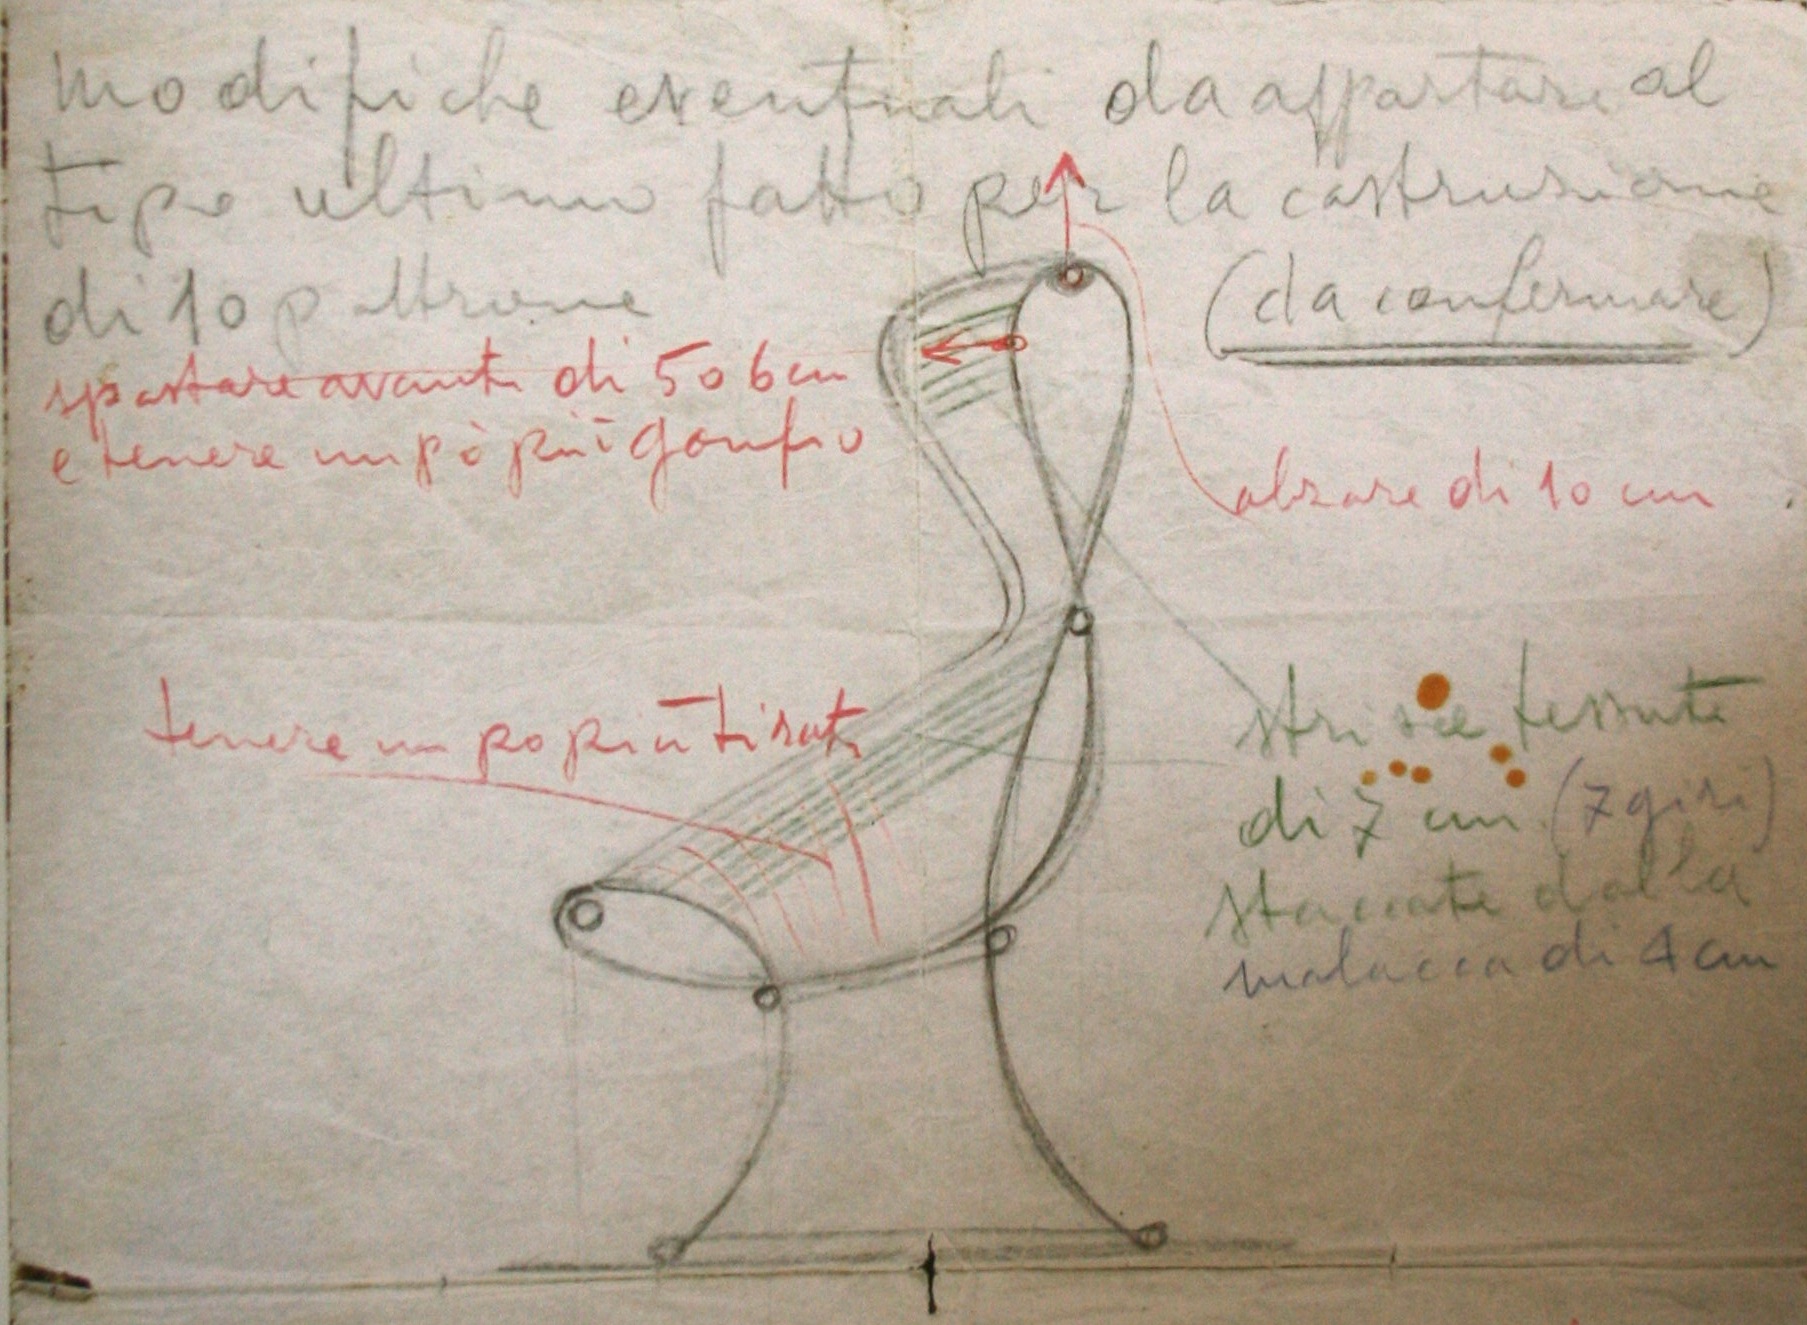 modifiche eventuali da apportare al
tipo ultimo fatto per la costruzione
di 10 poltrone
(da confermare)
spostare avanti di 5 o 6 cm
e tenere un pò più gonfio
alzare di 10 cm
tenere un po più tirati
strisce tessute
di 7 cm (7 giri)
staccate dalla
malacca di 4 cm